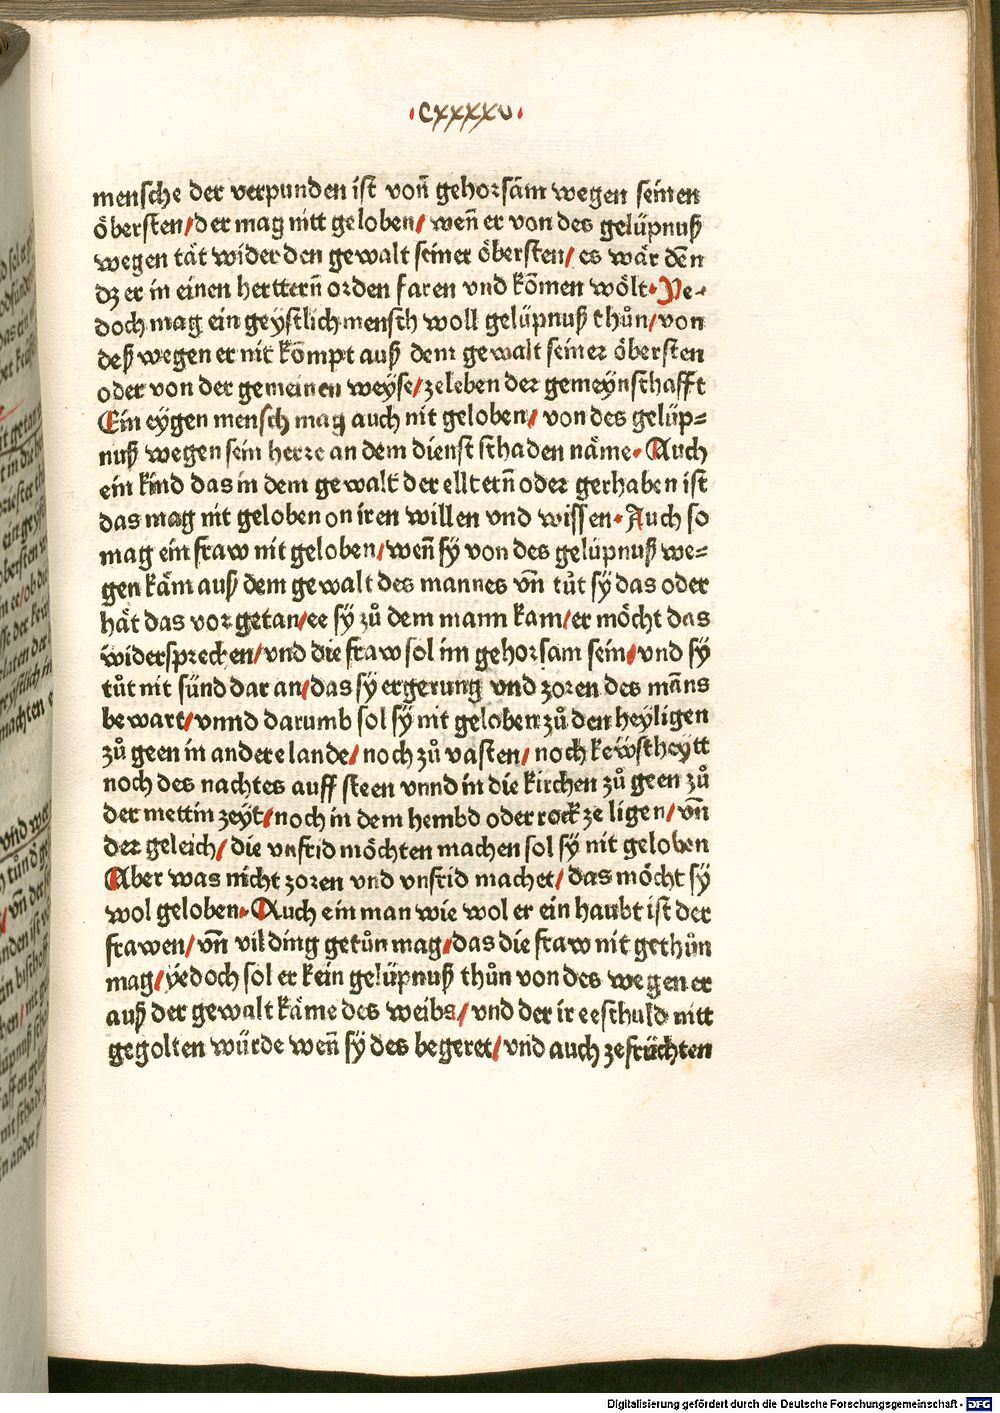 ·cxxxxv·
mensche der verpunden ist von̄ gehorsam̄ wegen seinen
öbersten/der mag nitt geloben/ wen̄ er von des gelüpnuß
wegen tät wider den gewalt seiner öbersten/ es wär den̄
dz er in einen hertttern̄ orden faren vnd kōmen wölt·Ye-
doch mag ein geystlich mensch woll gelüpnuß thůn/von
deß wegen er nit kōmpt auß dem gewalt seiner öbersten
oder von der gemeinen weyse/zeleben der gemeynschafft
Ein eygen mensch mag auch nit geloben/ von des gelüp=
nuß wegen sein herre an dem dienst schaden näme· Auch
ein kind das in dem gewalt der ellteren̄ oder gerhaben ist
das mag nit geloben on iren willen vnd wissen· Auch so
mag ein fraw nit geloben/wen̄ sÿ von des gelüpnuß we=
gen käm auß dem gewalt des mannes vn̄ tůt sÿ das oder
hät das vor getan/ee sÿ zů dem mann kam/er möcht das
widersprechen/vnd die fraw sol im gehorsam sein/vnd sÿ
tůt nit sünd dar an/das sÿ ergerung vnd zoren des man̄s
bewart/vnnd darumb sol sÿ nit geloben zů den heÿligen
zů geen in andere lande/ noch zů vasten/ noch kewscheytt
noch des nachtes auff steen vnnd in die kirchen zů geen zů
der mettin zeÿt/noch in dem hembd oder rock ze ligen/ vn̄
der geleich/ die vnfrid möchten machen sol sÿ nit geloben
Aber was nicht zoren vnd vnfrid machet/ das möcht sÿ
wol geloben· Auch ein man wie wol er ein haubt ist der
frawen/ vn̄ vil ding getůn mag/das die fraw nit gethůn
mag/ÿedoch sol er kein gelüpnuß thůn von des wegen er
auß der gewalt käme des weibs/ vnd der ir eeschuld nitt
gegolten würde wen̄ sÿ des begeret/ vnd auch zefrüchten
Digitalisierung gefördert durch die Deutsche Forschungsgemeinschaft - DFG